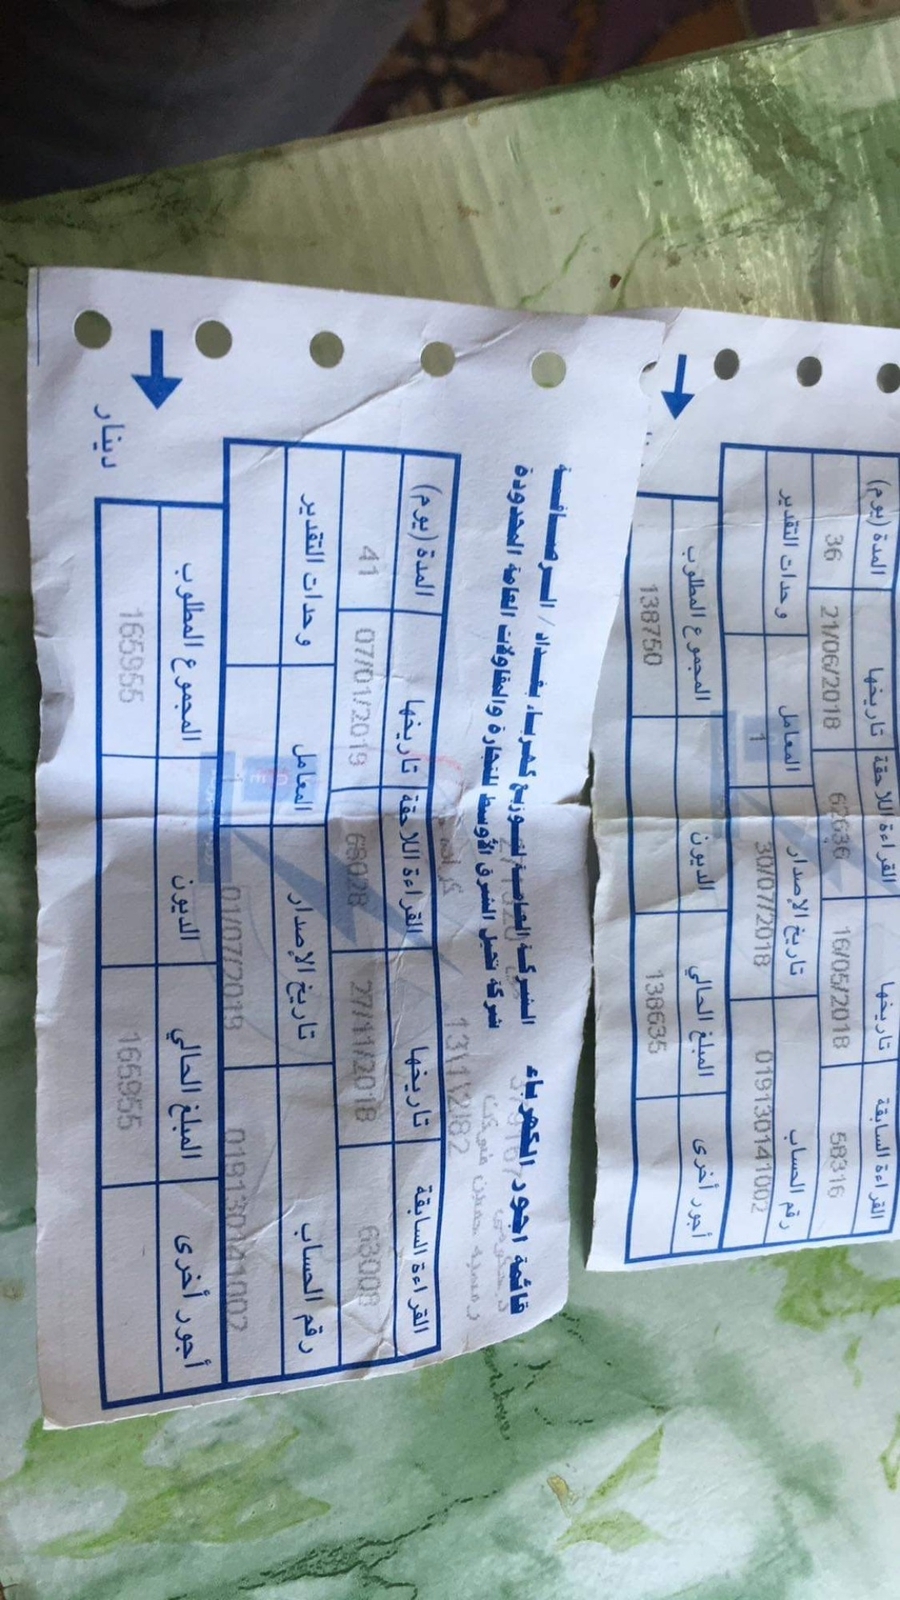 قائمة اجور الكهرباء
الشركة العامة لتوزيع كهرباء بغداد / الرصافة
شركة نخيل الشرق الأوسط للتجارة والمقاولات العامة المحدودة
13\1\2\82
القراءة السابقة تاريخها القراءة اللاحقة تاريخها المدة (يوم)
63008 27/11/2018 68028 07/01/2019 41
رقم الحساب تاريخ الإصدار المعامل وحدات التقدير
019130141002 01/07/2019 1
أجور أخرى المبلغ الحالي الديون المجموع المطلوب
165955 165955
دينار
القراءة السابقة تاريخها القراءة اللاحقة تاريخها المدة (يوم)
58316 16/05/2018 62636 21/06/2018 36
رقم الحساب تاريخ الإصدار المعامل وحدات التقدير
019130141002 30/07/2018 1
أجور أخرى المبلغ الحالي الديون المجموع المطلوب
138635 138750